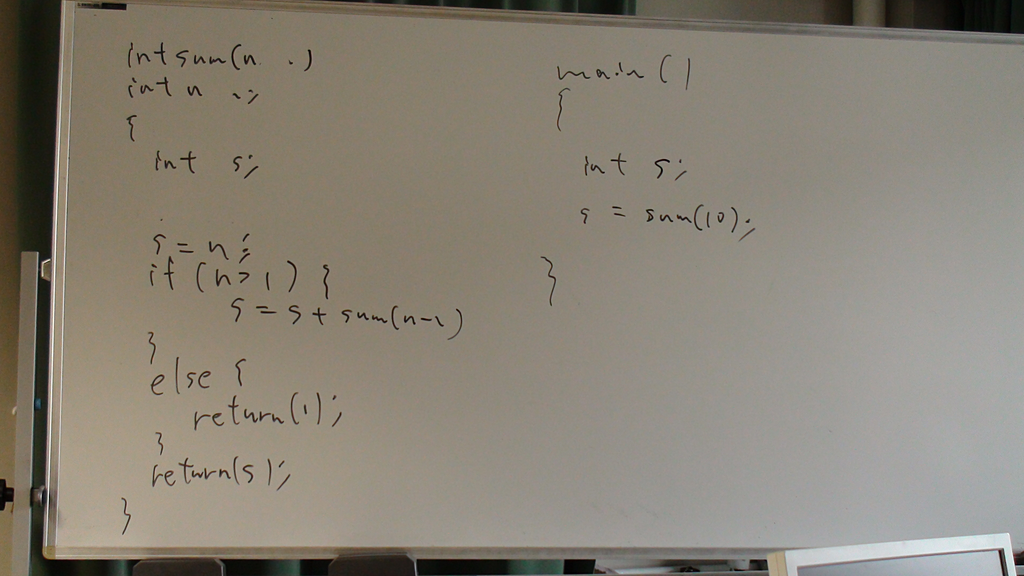 int sum(n .)
int n .;
{
int s;
s = n;
if (n > 1) {
s = s + sum(n-1)
}
else {
return(1);
}
return(s);
}
main()
{
int s;
s = sum(10);
}